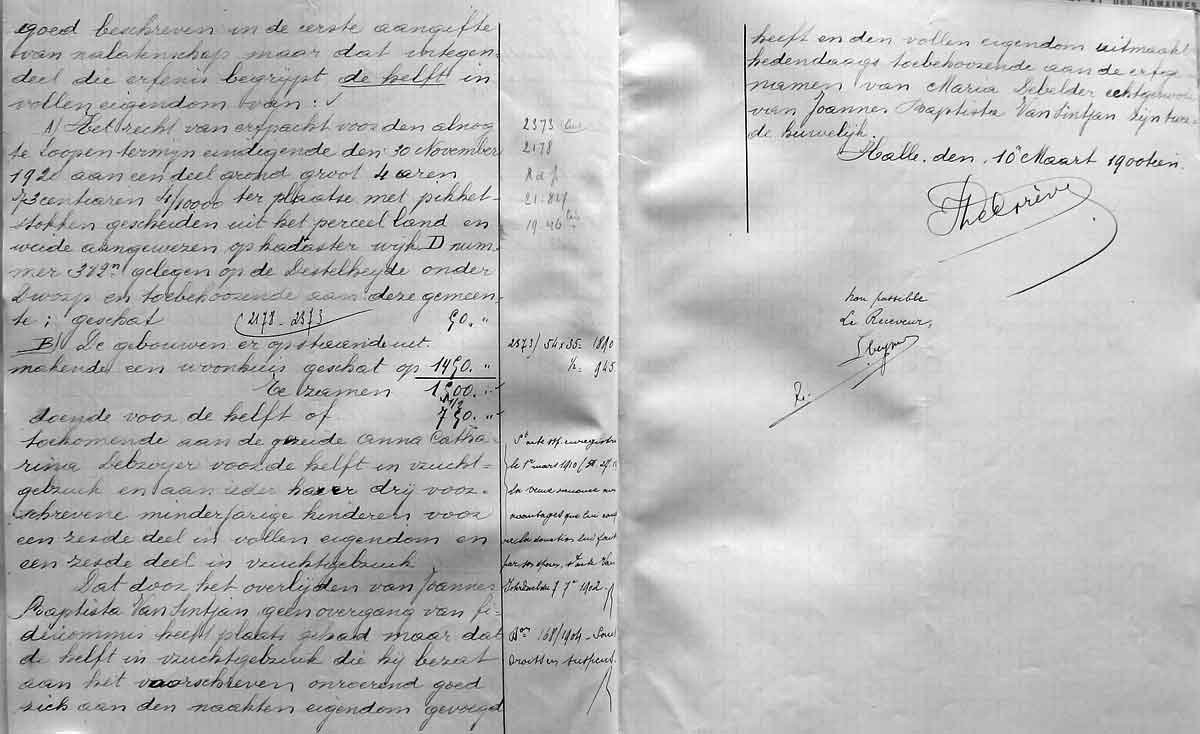 goed beschreven in de eerste aangifte
van nalatenschap maar dat integen-
deel die erfenis begrijpt de helft in
vollen eigendom van :
A) Het recht van erfpacht voor den alnog
te loopen termijn eindigende den 30 November
192 aan een deel grond groot 4 aren
73 centiaren 4/10000 ter plaatse met pikket-
stokken gescheiden uit het perceel land en
weide aangewezen op kadaster wijk D num-
mer 372n gelegen op de Destelheyde onder
Dworp en toebehoorende aan deze gemeen-
te ; geschat 2178-2373 50. "
B) De gebouwen er opstaande uit-
makende een woonhuis geschat op 1450. "
Te zamen 1500. "
1/2
doende voor de helft of 750. "
toekomende aan de gezeide Anna Catha-
rina Debroyer voor de helft in vrucht-
gebruik en aan ieder harer drij voor-
schrevene minderjarige kinderen voor
een zesde deel in vollen eigendom en
een zesde deel in vruchtgebruik
Dat door het overlijden van Joannes
Baptista Van Sintjan geen overgang van fi-
deicommis heeft plaats gehad maar dat
de helft in vruchtgebruik die hij bezat
aan het voorschreven onroerend goed
zich aan den naakten eigendom gevoegd
2373
2178
21.87
19.46
2373/54 x 35. 1890
1/2 = 945
enregistré
le 1r mars 1910
La veuve renonce aux
avantages que lui
la donation lui fait
par son époux,
7 7re 1902.
Don 168/1904 - Sont
droits en suspens.
DES DOMAINES
heeft en den vollen eigendom uitmaakt
hedendaags toebehoorende aan de erfge-
namen van Maria Debelder echtgenoote
van Joannes Baptista Van Sintjan zijn twee-
de huwelijk.
Halle, den 10n Maart 1900tien.
non passible
Le Receveur,